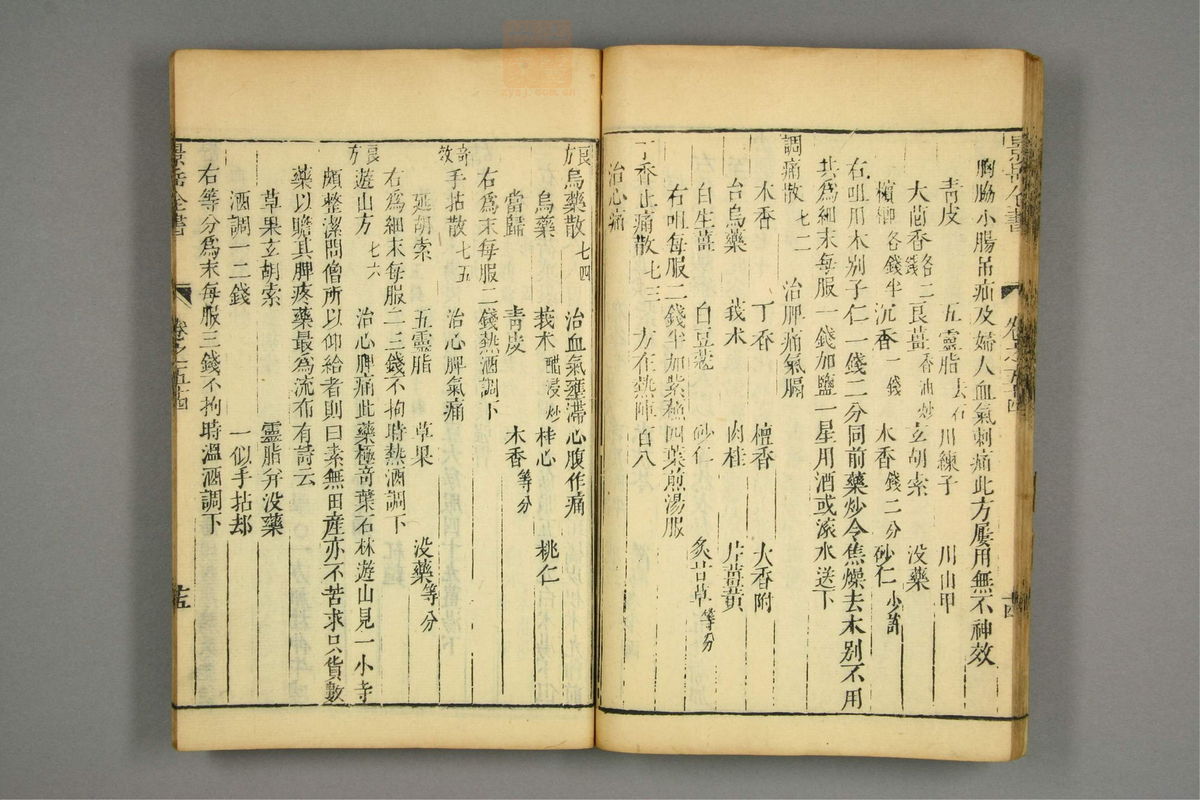 景岳全書
卷之五十四
十四
胸脇小腸吊疝及婦人血氣刺痛此方屢用無不神效
青皮 五靈脂去石 川練子 川山甲
大茴香各二錢 良薑香油炒 玄胡索 没藥
檳榔各錢半 沉香一錢 木香錢二分 砂仁少許
右咀用木别子仁一錢二分同前藥炒令焦燥去木别不用
共爲細末每服一錢加鹽一星用酒或滚水送下
調痛散七二 治脾痛氣膈
木香 丁香 檀香 大香附
台烏藥 莪术 肉桂 片薑黃
白生薑 白豆蔻 砂仁 炙甘草等分
右咀每服二錢半加紫蘇四葉煎湯服
丁香止痛散七三 方在熱陣百八
治心痛
良方烏藥散七四 治血氣壅滯心腹作痛
烏藥 莪术醋浸炒 桂心 桃仁
當歸 青皮 木香等分
右爲末每服二錢熱酒調下
奇效手拈散七五 治心脾氣痛
延胡索 五靈脂 草果 没藥等分
右爲細末每服二三錢不拘時熱酒調下
良方遊山方七六 治心脾痛此藥極奇葉石林遊山見一小寺
頗整潔問僧所以仰給者則曰素無田産亦不苦求只貨數
藥以贍其脾疼藥最爲流布有詩云
草果玄胡索 靈脂并没藥
酒調一二錢 一似手拈却
右等分爲末每服三錢不拘時溫酒調下
景岳全書
卷之五十四
十五